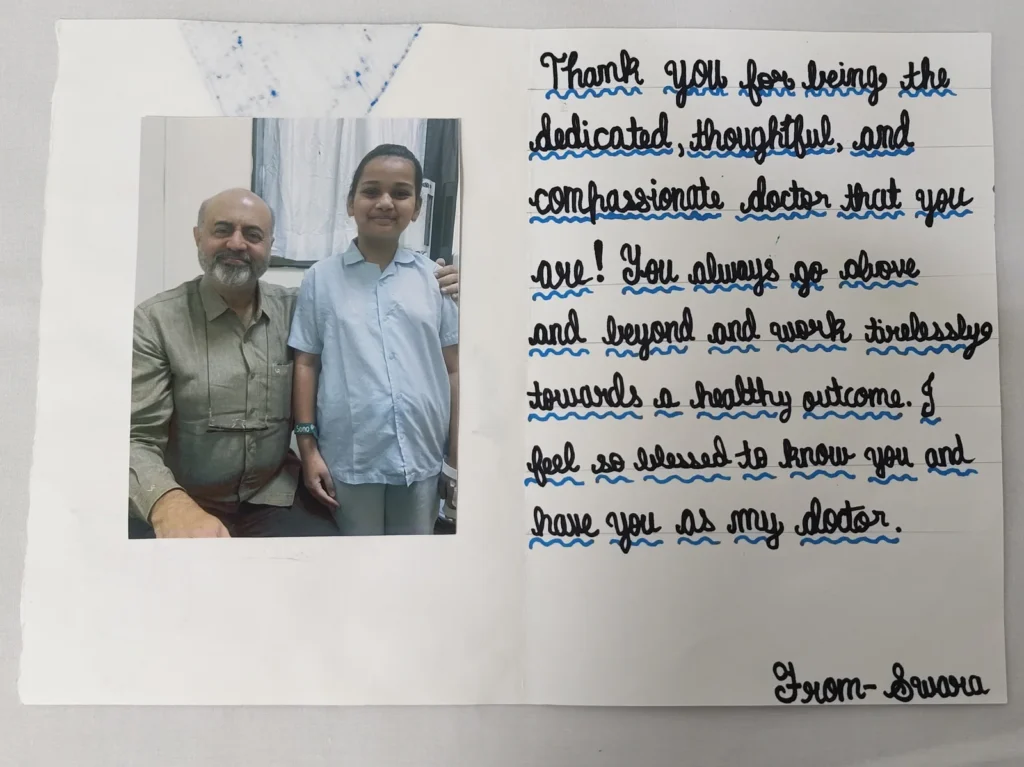 Thank you for being the
dedicated, thoughtful, and
compassionate doctor that you
are! You always go above
and beyond and work tirelessly
towards a healthy outcome. I
feel so blessed to know you and
have you as my doctor.
From- Swara